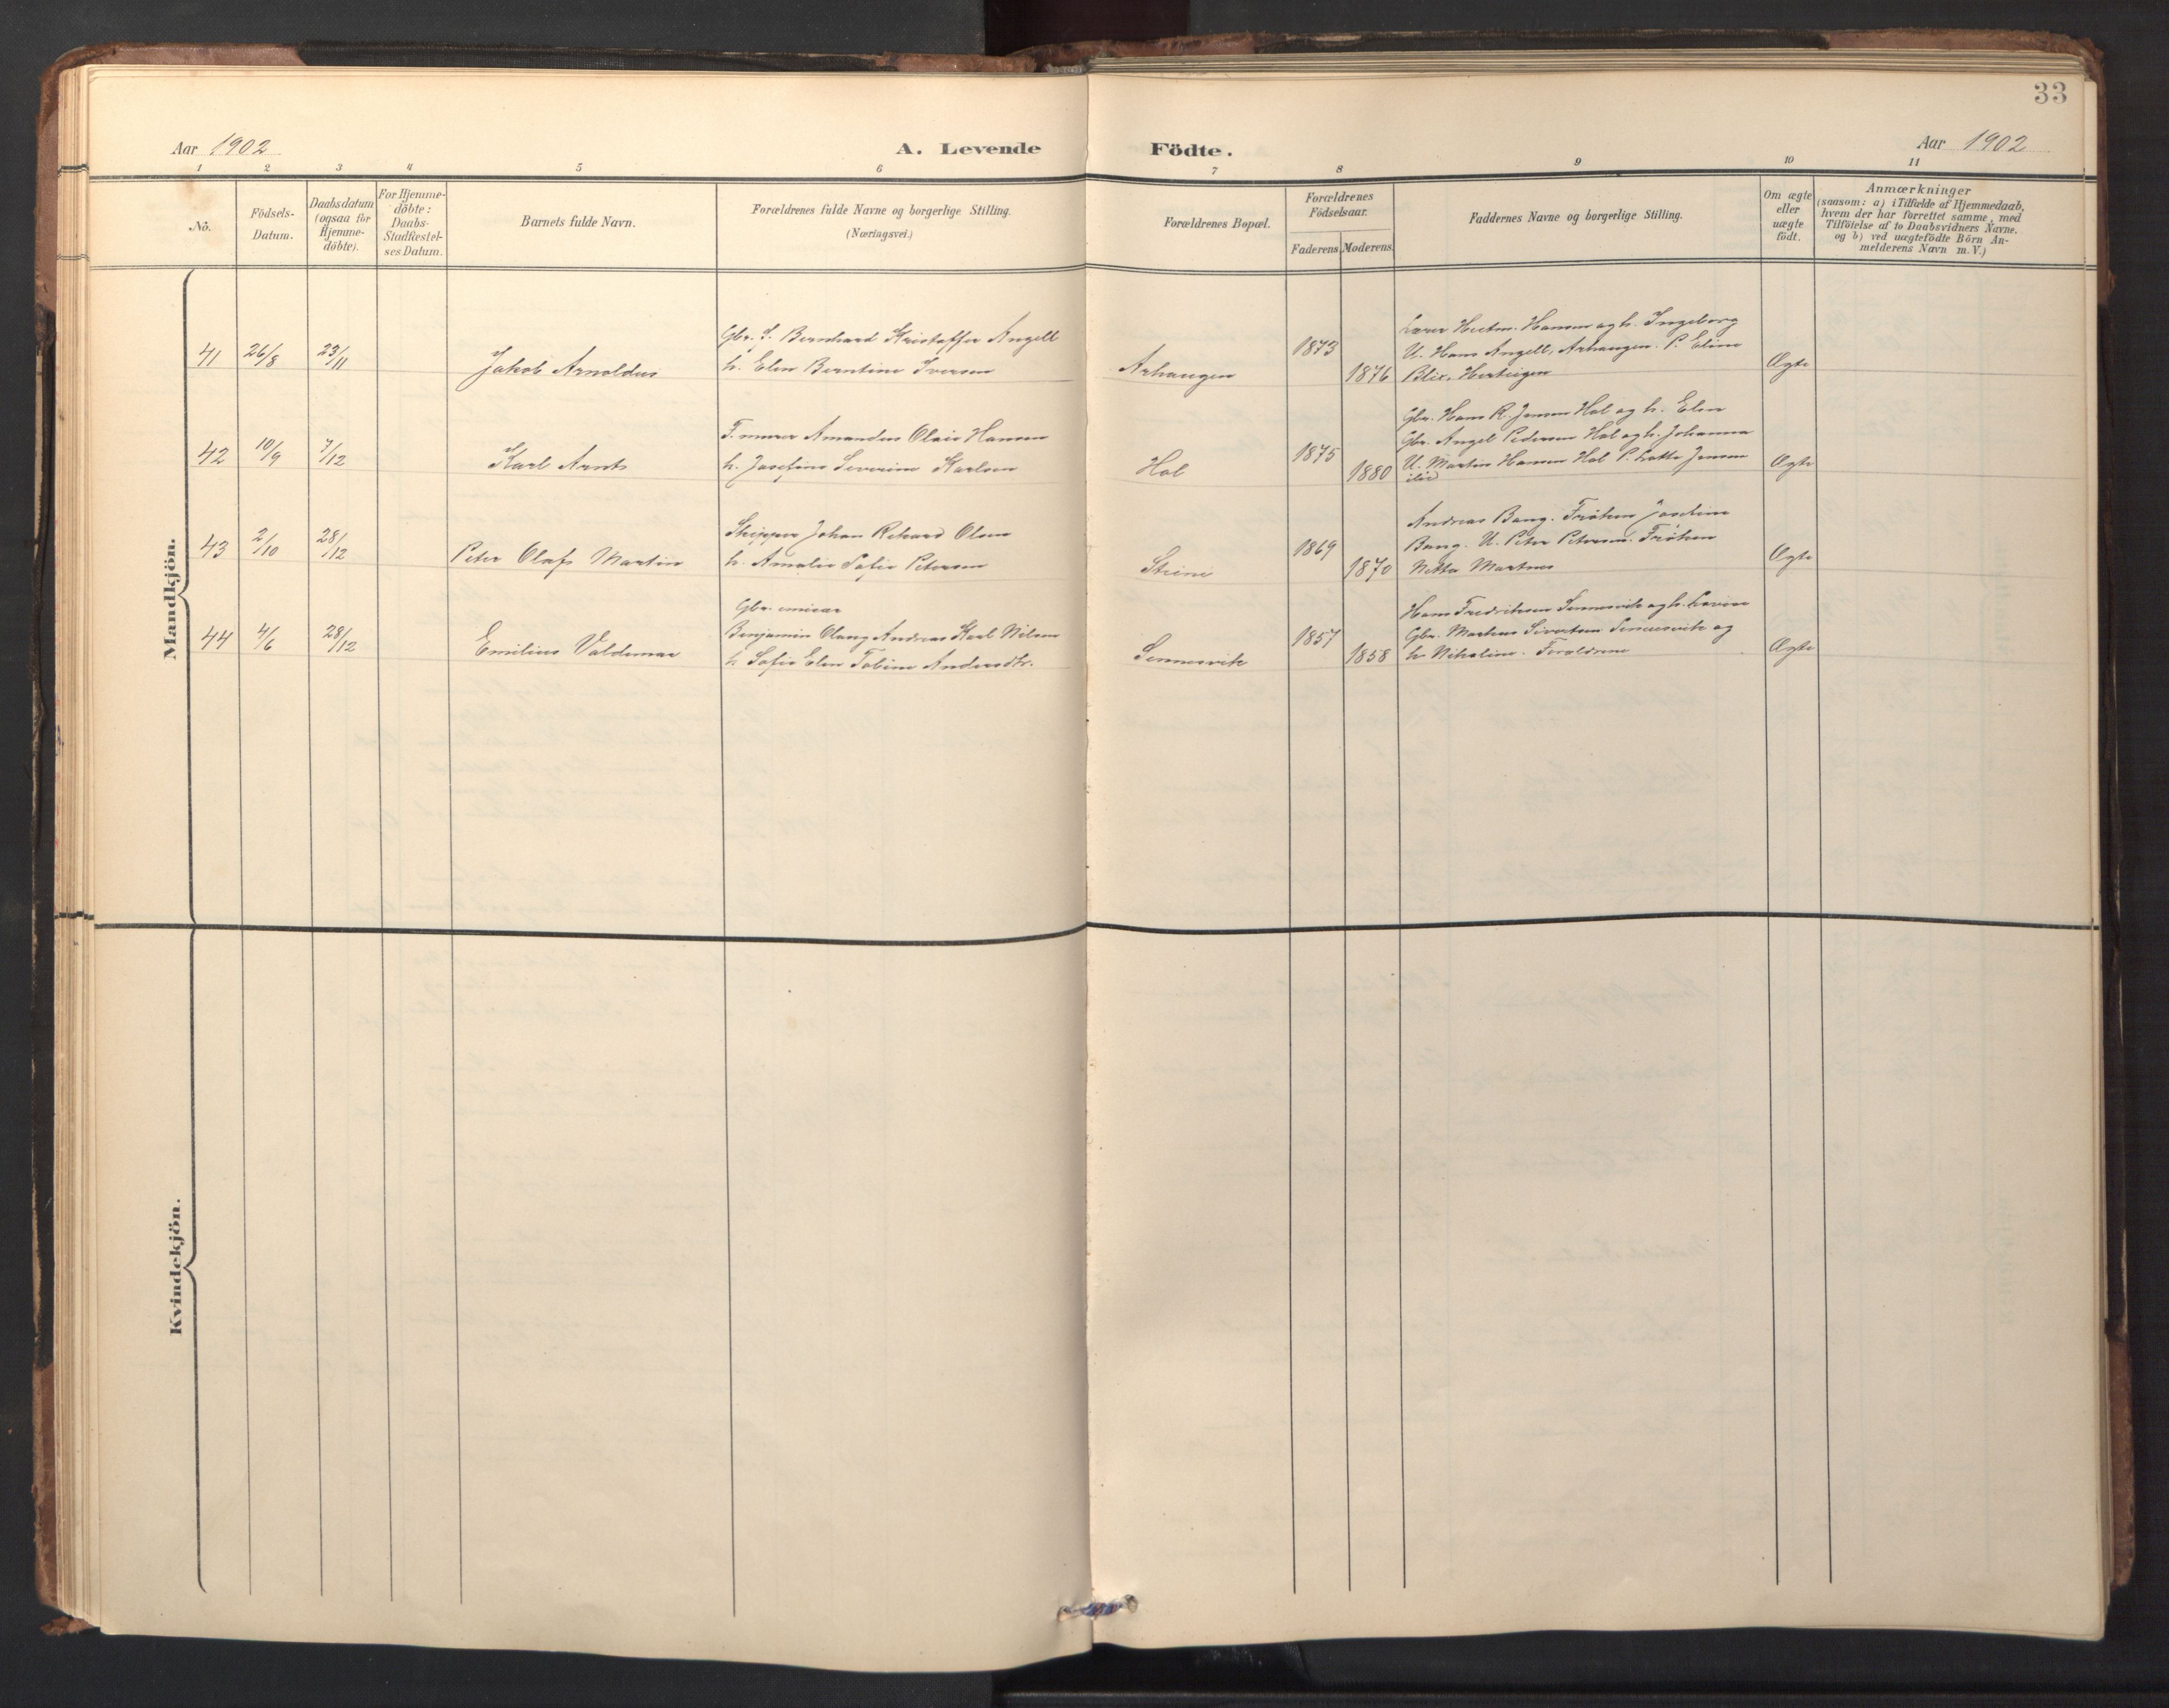 33
Aar 1902
A. Levende Födte.
Aar 1902
1 2 3 4 5 6 7 8 9 10 11
No.
Födsels-Datum.
Daabsdatum (ogsaa for Hjemme-döbte).
For Hjemme-döbte: Daabs-Stadfæstel-ses Datum.
Barnets fulde Navn.
Forældrenes fulde Navne og borgerlige Stilling.
(Næringsvei.)
Forældrenes Bopæl.
Forældrenes Födselsaar.
Faderens. Moderens.
Faddernes Navne og borgerlige Stilling.
Om ægte eller uægte födt.
Anmærkninger
(saasom: a) i Tilfælde af Hjemmedaab,
hvem der har forrettet samme, med
Tilföielse af to Daabsvidners Navne.
og b) ved uægtefödte Börn An-
melderens Navn m. V.)
Mandkjön.
41 26/8 23/11 Jakob Arnoldus
Gbr. S. Bernhard Kristoffer Angell
h. Elen Berntine Iversen
Arhaugen
1873
1876
Lærer Hansen og h. Ingeborg
U. Hans Angell, Arhaugen. P. Eline
Blix,
Ægte
42 10/9 7/12 Karl Arnts
Amandus Olai Hansen
h. Josefine Severine Karlsen
Hol
1875
1880
Gbr. Hans R. Jensen Hol og h. Elen
Gbr. Angel Pedersen Hol og h. Johanna
U. Martin Hansen Hol P. Lotte Jensen
Ægte
43 2/10 28/12 Peter Olaf Martin
Skipper Johan Rikard Olsen
h. Amalie Sofie Petersen
Steine
1869
1870
Andreas Bang. Frøken Josefine
Bang. U. Peter Petersen. Frøken
Netta Martnes
Ægte
44 4/6 28/12 Emilius Valdemar
Gbr.
Benjamin Olaus Andreas Karl Nilsen
h. Sofie Elen Tobine Andersdtr.
Sennesvik
1857
1858
Hans Fredriksen Sennesvik og h. Lovise
Gbr. Markus Sivertsen Sennesvik og
h. Nikoline. Forældrene
Ægte
Kvindekjön.